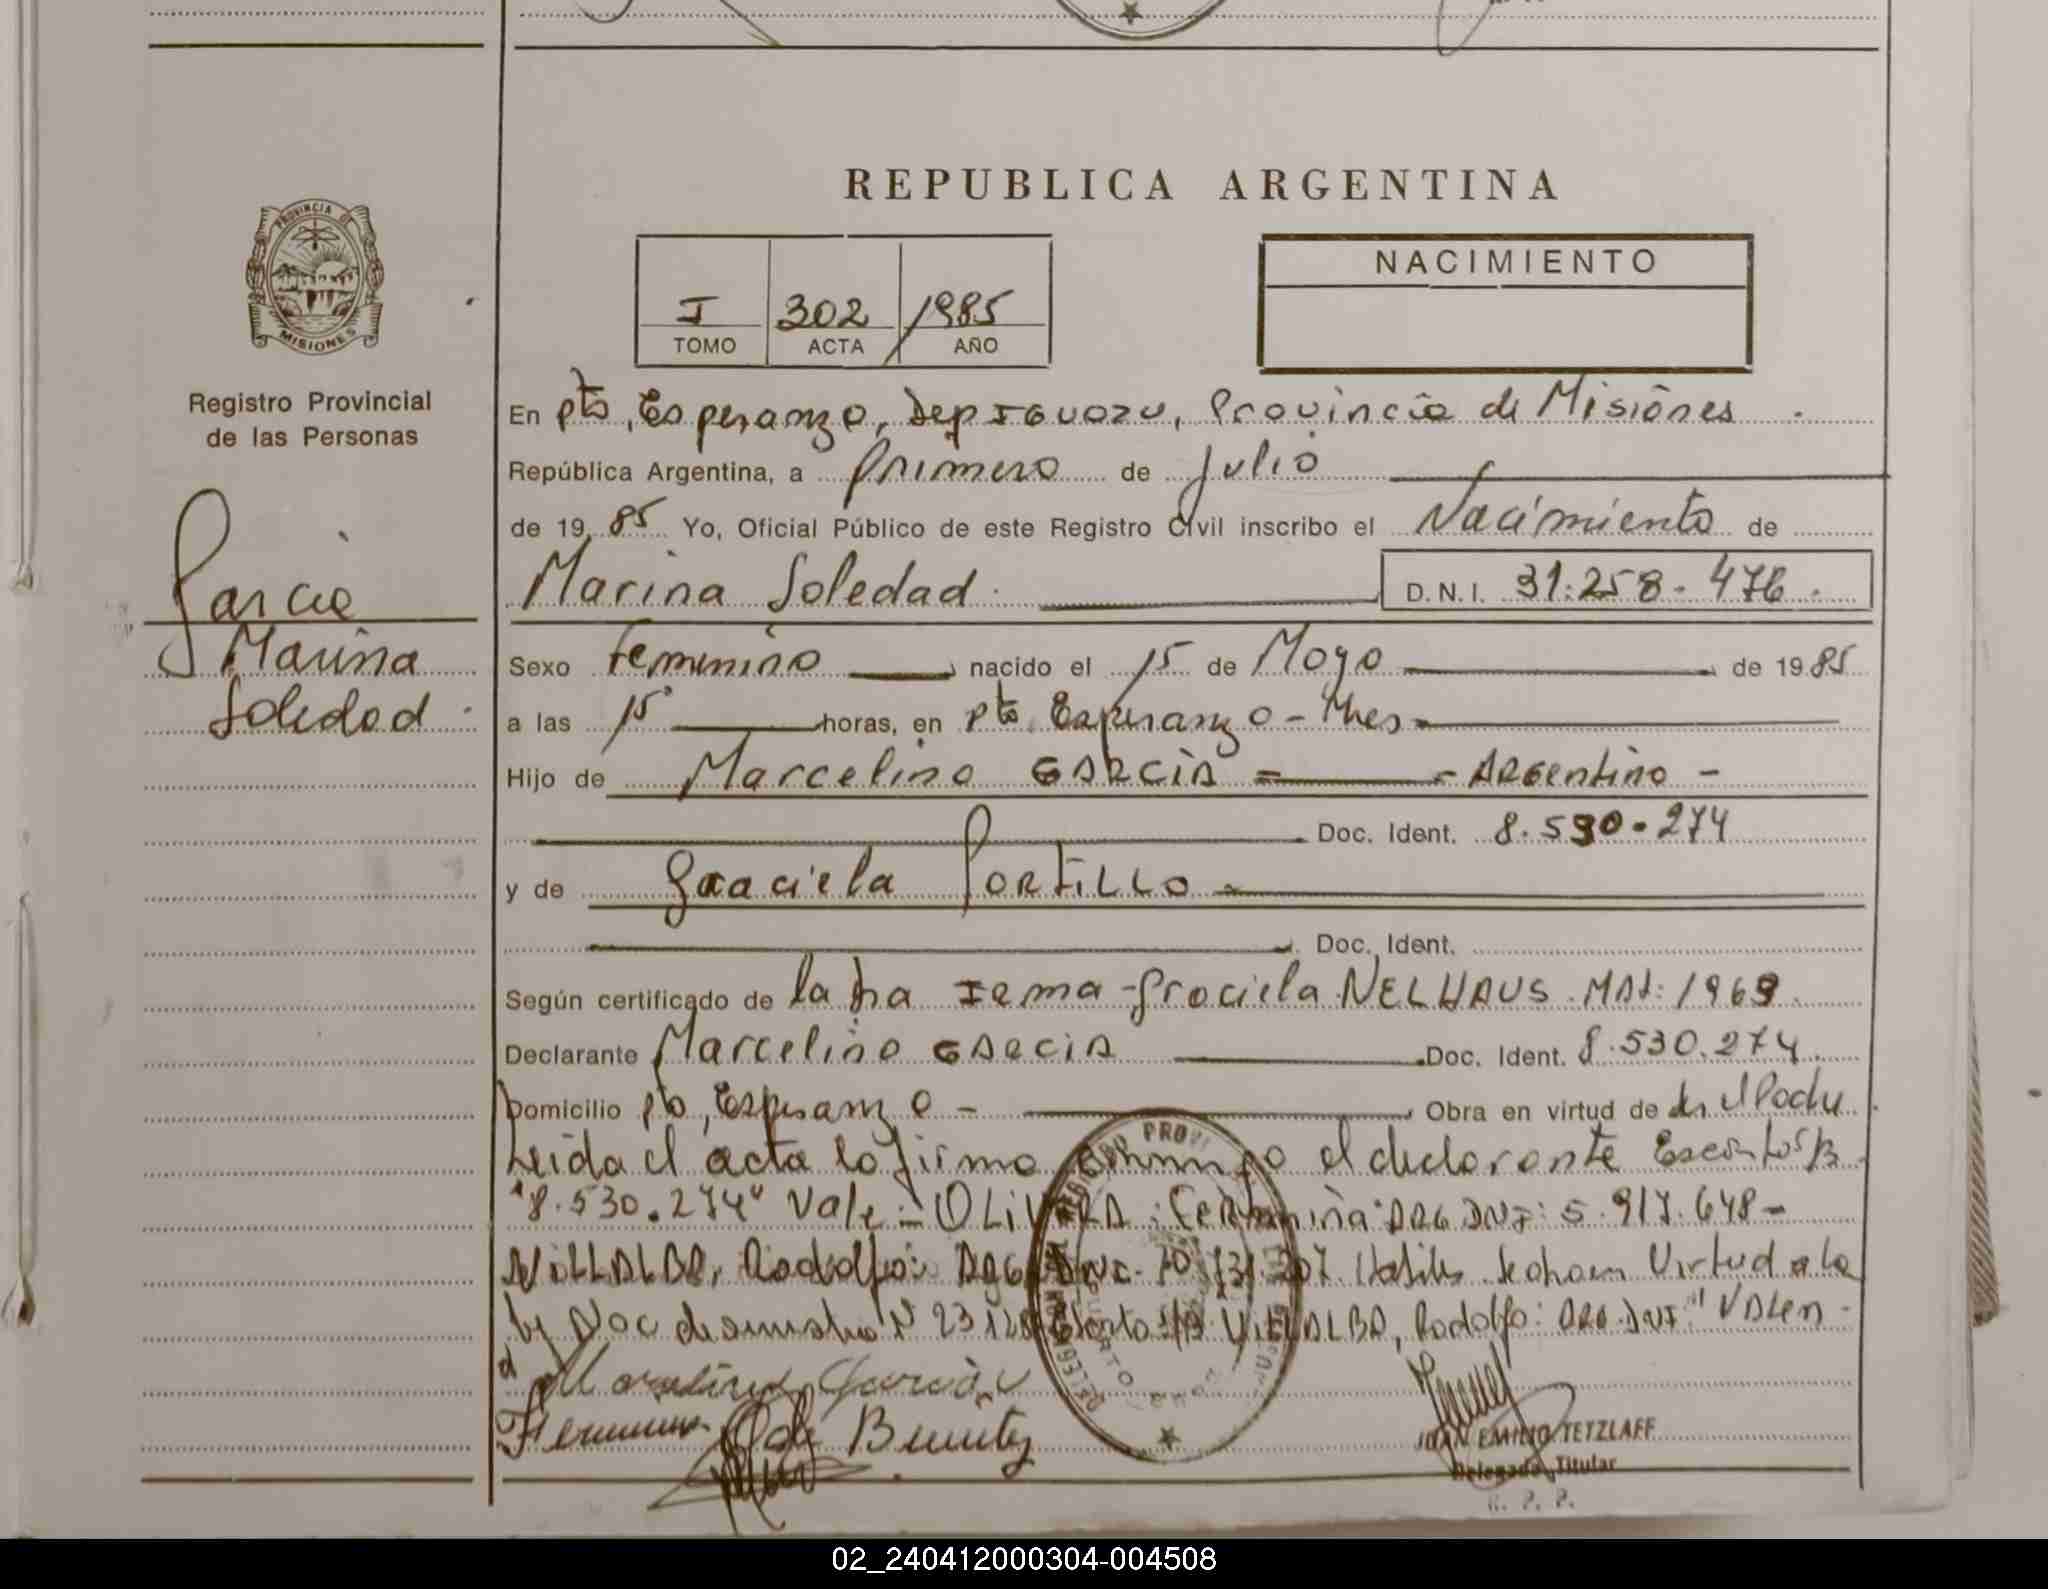 REPUBLICA ARGENTINA
NACIMIENTO
I 302 1985
TOMO ACTA AÑO
PROVINCIA DE
MISIONES
Registro Provincial
de las Personas
Garcia
Marina
Soledad
En Pto, Esperanza, Dep Iguazu, Provincia de Misiones
República Argentina, a primero de Julio
de 19 85 Yo, Oficial Público de este Registro Civil inscribo el Nacimiento de
Marina Soledad D.N.I. 31.258.476
Sexo femenino nacido el 15 de Mayo de 19 85
a las 15 horas, en Pto Esperanza - Mnes
Hijo de Marcelino GARCIA = - Argentino -
Doc. Ident. 8.530.274
y de Graciela PORTILLO
Doc. Ident.
Según certificado de la Dra Irma Graciela NELHAUS MAT: 1969
Declarante Marcelino GARCIA Doc. Ident. 8.530.274
Domicilio Pto, Esperanza - Obra en virtud de
Leida el acta la firma conmigo el declarante
"8.530.274" Vale - OLIVERA ARG DNI: 5.917.648-
VILLALBA, Rodolfo: ARG DNI Virtud a la
VILLALBA, Rodolfo: ARG. DNI
Marcelino Garcia
de Benitez
JUAN EMILIO TETZLAFF
Delegado Titular
R. P. P.
02_240412000304-004508